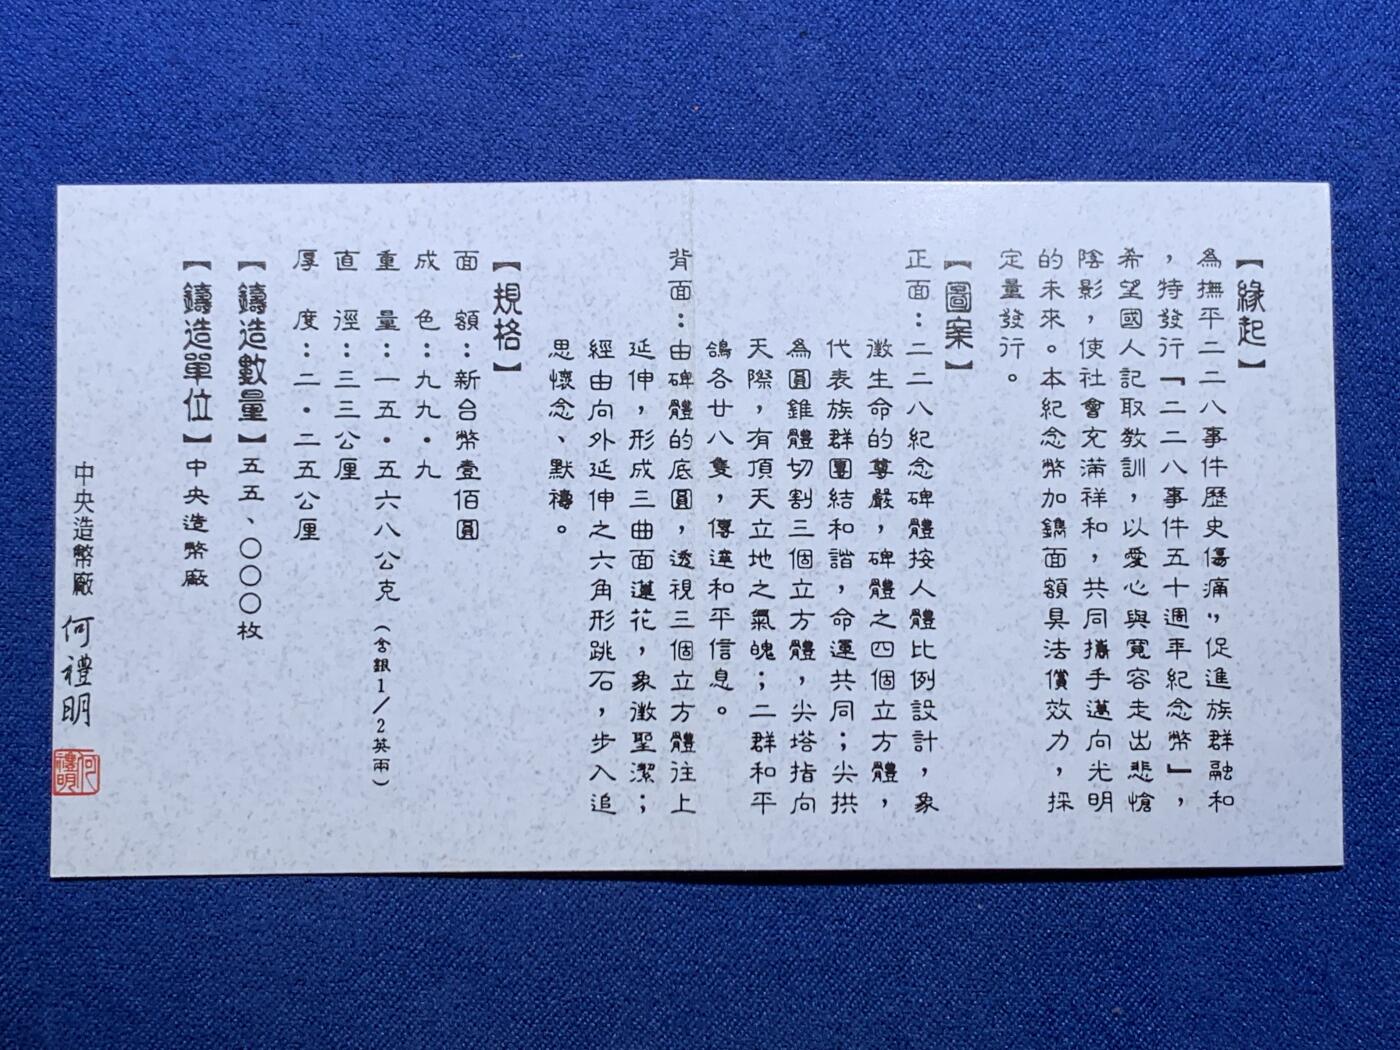 【緣起】
為撫平二二八事件歷史傷痛，促進族群融和
，特發行『二二八事件五十週年紀念幣』，
希望國人記取教訓，以愛心與寬容走出悲愴
陰影，使社會充滿祥和，共同攜手邁向光明
的未來。本紀念幣加鐫面額具法償效力，採
定量發行。
【圖案】
正面：二二八紀念碑體按人體比例設計，象
徵生命的尊嚴，碑體之四個立方體，
代表族群團結和諧，命運共同；尖拱
為圓錐體切割三個立方體，尖塔指向
天際，有頂天立地之氣魄；二群和平
鴿各廿八隻，傳達和平信息。
背面：由碑體的底圓，透視三個立方體往上
延伸，形成三曲面蓮花，象徵聖潔；
經由向外延伸之六角形跳石，步入追
思懷念、默禱。
【規格】
面　額：新台幣壹佰圓
成　色：九九·九
重　量：一五·五六八公克（含銀1/2英兩）
直　徑：三三公厘
厚　度：二·二五公厘
【鑄造數量】五五、〇〇〇枚
【鑄造單位】中央造幣廠
中央造幣廠 何禮明
何禮明